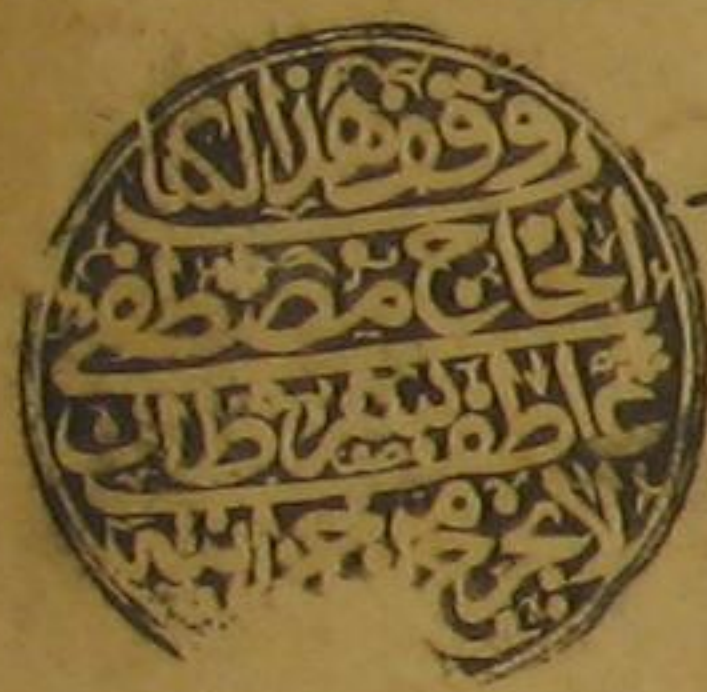 وقف هذا الكتاب
الحاج مصطفى
عاطف بشرط ان
لا يخرج من خزانته